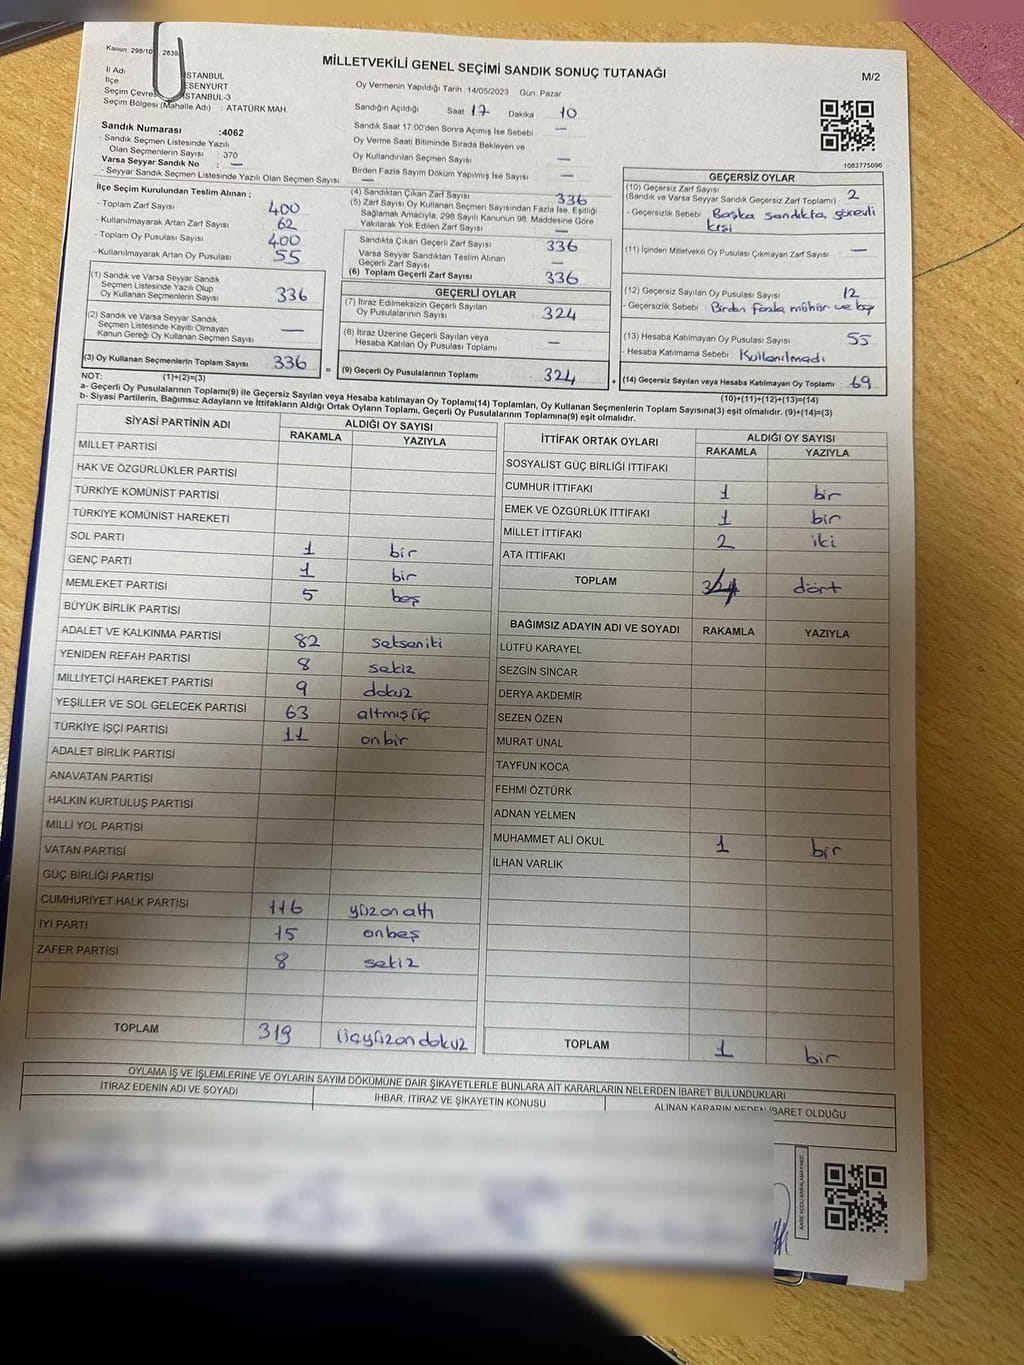 Kanun: 298/10 , 2839
MİLLETVEKİLİ GENEL SEÇİMİ SANDIK SONUÇ TUTANAĞI
M/2
İl Adı İSTANBUL
İlçe ESENYURT
Seçim Çevres İSTANBUL-3
Seçim Bölgesi (Mahalle Adı) : ATATÜRK MAH.
Sandık Numarası :4062
- Sandık Seçmen Listesinde Yazılı
Olan Seçmenlerin Sayısı : 370
Varsa Seyyar Sandık No : —
- Seyyar Sandık Seçmen Listesinde Yazılı Olan Seçmen Sayısı: —
Oy Vermenin Yapıldığı Tarih :14/05/2023 Gün: Pazar
Sandığın Açıldığı Saat 17 Dakika 10
Sandık Saat 17:00'den Sonra Açılmış İse Sebebi —
Oy Verme Saati Bitiminde Sırada Bekleyen ve
Oy Kullandırılan Seçmen Sayısı —
Birden Fazla Sayım Döküm Yapılmış İse Sayısı —
1083775096
İlçe Seçim Kurulundan Teslim Alınan :
- Toplam Zarf Sayısı 400
- Kullanılmayarak Artan Zarf Sayısı 62
- Toplam Oy Pusulası Sayısı 400
- Kullanılmayarak Artan Oy Pusulası 55
(1) Sandık ve Varsa Seyyar Sandık
Seçmen Listesinde Yazılı Olup
Oy Kullanan Seçmenlerin Sayısı 336
(2) Sandık ve Varsa Seyyar Sandık
Seçmen Listesinde Kayıtlı Olmayan
Kanun Gereği Oy Kullanan Seçmen Sayısı —
(3) Oy Kullanan Seçmenlerin Toplam Sayısı 336
(1)+(2)=(3)
(4) Sandıktan Çıkan Zarf Sayısı 336
(5) Zarf Sayısı Oy Kullanan Seçmen Sayısından Fazla İse, Eşitliği
Sağlamak Amacıyla, 298 Sayılı Kanunun 98. Maddesine Göre
Yakılarak Yok Edilen Zarf Sayısı —
Sandıkta Çıkan Geçerli Zarf Sayısı 336
Varsa Seyyar Sandıktan Teslim Alınan
Geçerli Zarf Sayısı —
(6) Toplam Geçerli Zarf Sayısı 336
GEÇERLİ OYLAR
(7) İtiraz Edilmeksizin Geçerli Sayılan
Oy Pusulalarının Sayısı 324
(8) İtiraz Üzerine Geçerli Sayılan veya
Hesaba Katılan Oy Pusulası Toplamı —
= (9) Geçerli Oy Pusulalarının Toplamı 324
GEÇERSİZ OYLAR
(10) Geçersiz Zarf Sayısı
(Sandık ve Varsa Seyyar Sandık Geçersiz Zarf Toplamı) : 2
- Geçersizlik Sebebi Başka sandıkta görevli
kişi
(11) İçinden Milletvekili Oy Pusulası Çıkmayan Zarf Sayısı —
(12) Geçersiz Sayılan Oy Pusulası Sayısı 12
- Geçersizlik Sebebi Birden fazla mühür ve boş
(13) Hesaba Katılmayan Oy Pusulası Sayısı 55
- Hesaba Katılmama Sebebi Kullanılmadı
+ (14) Geçersiz Sayılan veya Hesaba Katılmayan Oy Toplamı 69
(10)+(11)+(12)+(13)=(14)
NOT:
a- Geçerli Oy Pusulalarının Toplamı(9) ile Geçersiz Sayılan veya Hesaba Katılmayan Oy Toplamı(14) Toplamları, Oy Kullanan Seçmenlerin Toplam Sayısına(3) eşit olmalıdır. (9)+(14)=(3)
b- Siyasi Partilerin, Bağımsız Adayların ve İttifakların Aldığı Ortak Oyların Toplamı, Geçerli Oy Pusulalarının Toplamına(9) eşit olmalıdır.
SİYASİ PARTİNİN ADI ALDIĞI OY SAYISI
RAKAMLA YAZIYLA
MİLLET PARTİSİ
HAK VE ÖZGÜRLÜKLER PARTİSİ
TÜRKİYE KOMÜNİST PARTİSİ
TÜRKİYE KOMÜNİST HAREKETİ
SOL PARTİ 1 bir
GENÇ PARTİ 1 bir
MEMLEKET PARTİSİ 5 beş
BÜYÜK BİRLİK PARTİSİ
ADALET VE KALKINMA PARTİSİ 82 sekseniki
YENİDEN REFAH PARTİSİ 8 sekiz
MİLLİYETÇİ HAREKET PARTİSİ 9 dokuz
YEŞİLLER VE SOL GELECEK PARTİSİ 63 altmışüç
TÜRKİYE İŞÇİ PARTİSİ 11 onbir
ADALET BİRLİK PARTİSİ
ANAVATAN PARTİSİ
HALKIN KURTULUŞ PARTİSİ
MİLLİ YOL PARTİSİ
VATAN PARTİSİ
GÜÇ BİRLİĞİ PARTİSİ
CUMHURİYET HALK PARTİSİ 116 yüzonaltı
İYİ PARTİ 15 onbeş
ZAFER PARTİSİ 8 sekiz
TOPLAM 319 üçyüzondokuz
İTTİFAK ORTAK OYLARI ALDIĞI OY SAYISI
RAKAMLA YAZIYLA
SOSYALİST GÜÇ BİRLİĞİ İTTİFAKI
CUMHUR İTTİFAKI 1 bir
EMEK VE ÖZGÜRLÜK İTTİFAKI 1 bir
MİLLET İTTİFAKI 2 iki
ATA İTTİFAKI
TOPLAM dört
BAĞIMSIZ ADAYIN ADI VE SOYADI RAKAMLA YAZIYLA
LÜTFÜ KARAYEL
SEZGİN SİNCAR
DERYA AKDEMİR
SEZEN ÖZEN
MURAT ÜNAL
TAYFUN KOCA
FEHMİ ÖZTÜRK
ADNAN YELMEN
MUHAMMET ALİ OKUL 1 bir
İLHAN VARLIK
TOPLAM 1 bir
OYLAMA İŞ VE İŞLEMLERİNE VE OYLARIN SAYIM DÖKÜMÜNE DAİR ŞİKAYETLERLE BUNLARA AİT KARARLARIN NELERDEN İBARET BULUNDUKLARI
İTİRAZ EDENİN ADI VE SOYADI İHBAR, İTİRAZ VE ŞİKAYETİN KONUSU ALINAN KARARIN NEDEN İBARET OLDUĞU